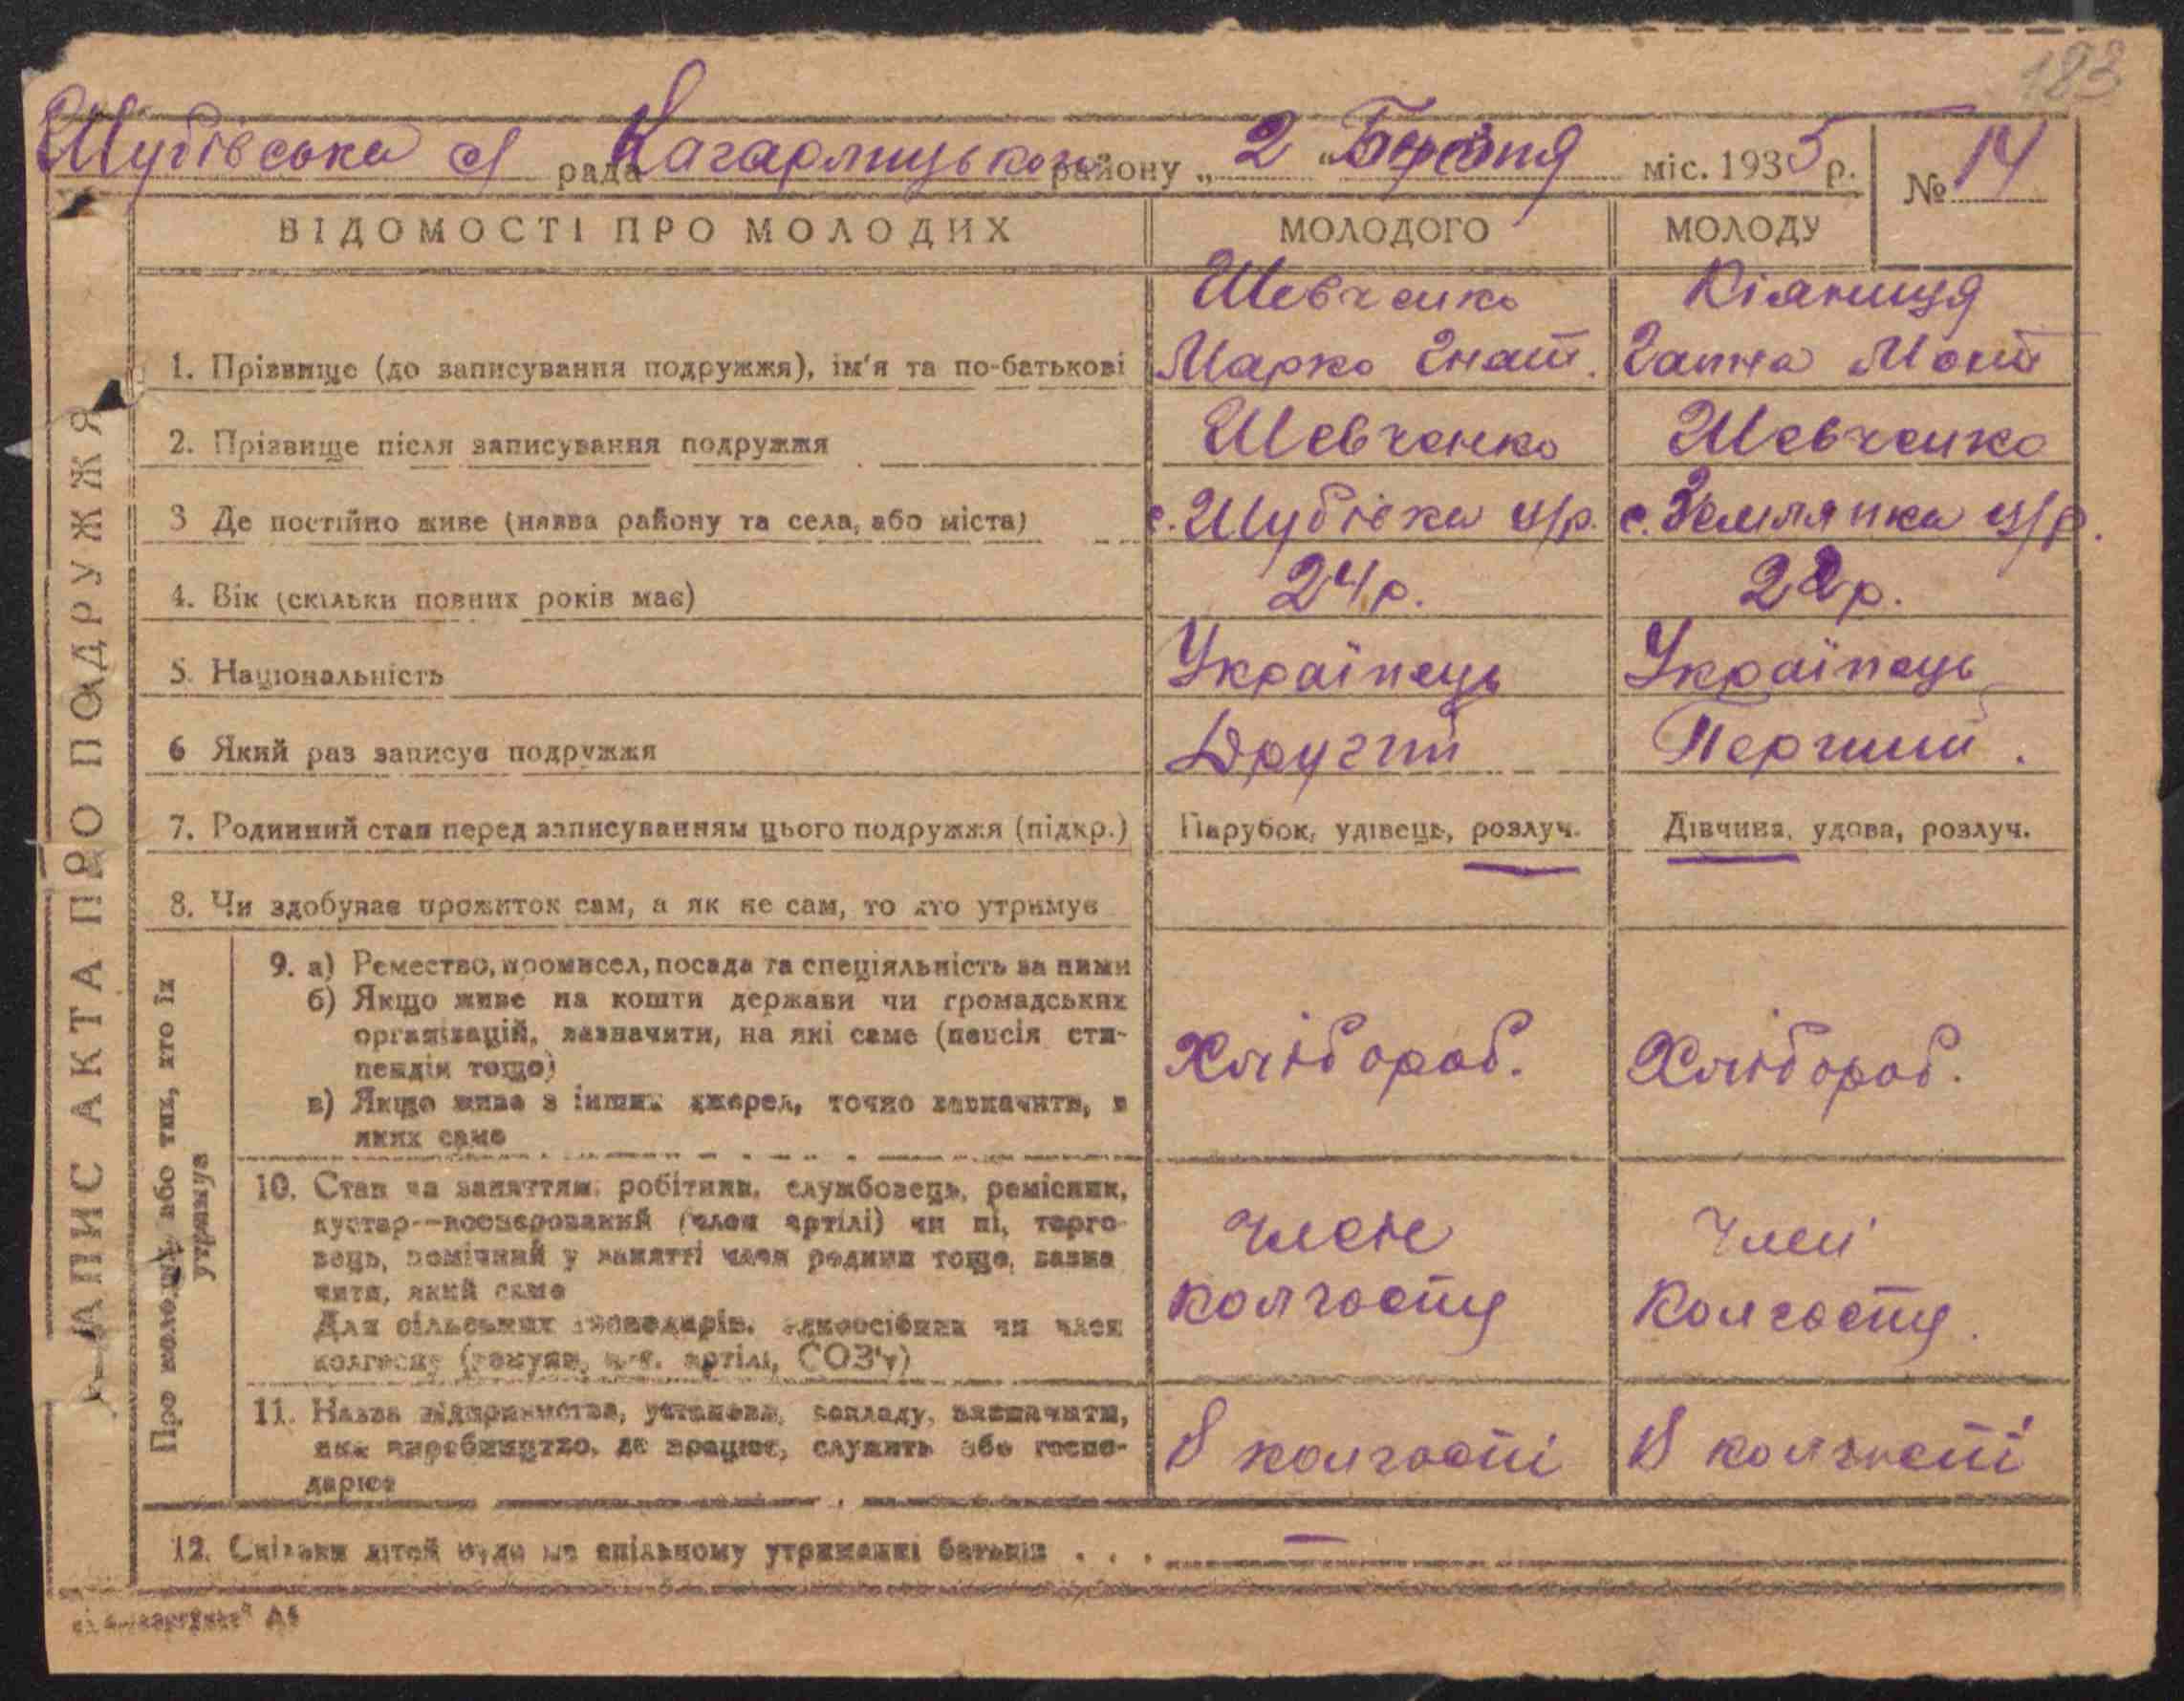 183
Шубівська с/ рада Кагарлицького району „ 2 “ Березня міс. 1935 р. № 14
ВІДОМОСТІ ПРО МОЛОДИХ МОЛОДОГО МОЛОДУ
Шевченко Кіяниця
1. Прізвище (до записування подружжя), ім'я та по-батькові Марко Гнат. Ганна Мокі
2. Прізвище після записування подружжя Шевченко Шевченко
3 Де постійно живе (назва району та села, або міста) с. Шубівка ц/р. с. Землянка ц/р.
4. Вік (скільки повних років має) 24 р. 22 р.
5. Національність Українець Українець
6 Який раз записує подружжя Другий Перший.
7. Родинний стан перед записуванням цього подружжя (підкр.) Парубок, удівець, розлуч. Дівчина, удова, розлуч.
8. Чи здобуває прожиток сам, а як не сам, то хто утримує
9. а) Ремество, промисел, посада та спеціяльність за ними
б) Якщо живе на кошти держави чи громадських
організацій, зазначити, на які саме (пенсія сти-
пендія тощо)
Хлібороб. Хлібороб.
в) Якщо живе з інших джерел, точно зазначити, з
яких саме
10. Стан за заняттям: робітник, службовець, ремісник,
кустар—кооперований (член артілі) чи ні, торго-
вець, помічний у занятті член родини тощо, зазна
чити, який саме
член колгоспу Член Колгоспу.
Для сільських господарів: одноосібник чи член
колгоспу (комуни, артілі, СОЗ'у)
11. Назва підприємства, установи, закладу, зазначити,
яке виробництво, де працює, служить або госпо-
дарює
В колгоспі В колгоспі
12. Скільки дітей буде на спільному утриманні батьків . . . —
ЗАПИС АКТА ПРО ПОДРУЖЖЯ
Про молодих або тих, хто їх
утримує